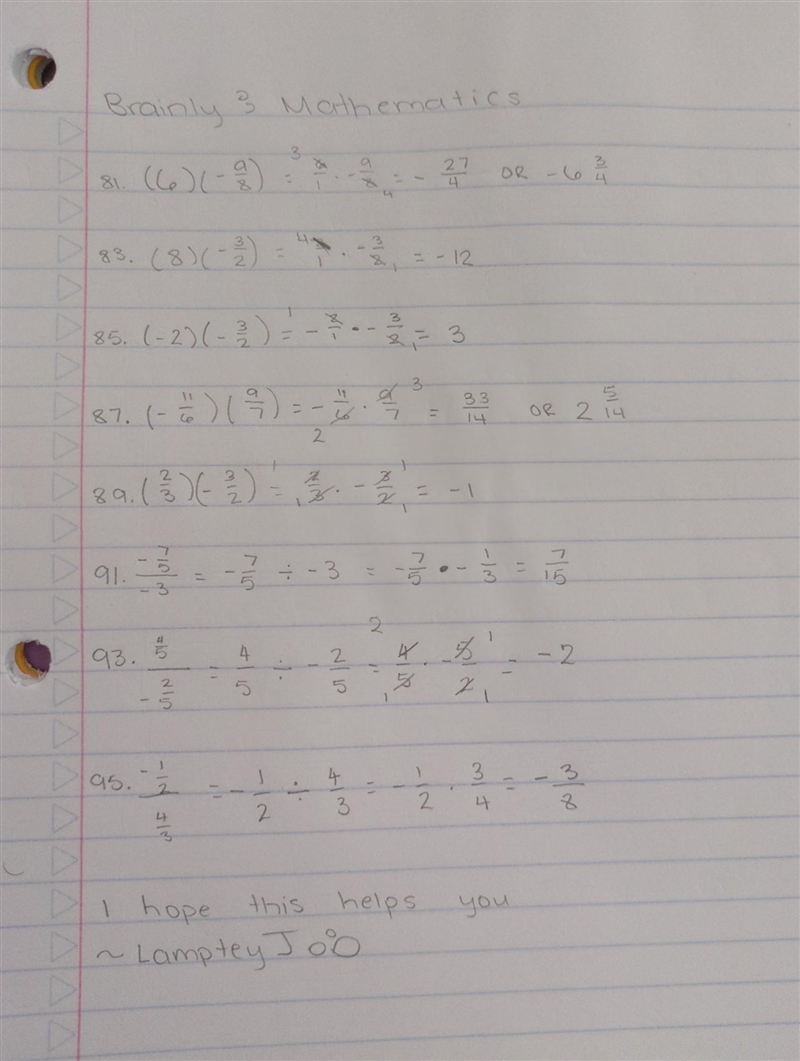 Brainly : Mathematics
81. (6)(-9/8) = 3 6/1 · -9/8 4 = -27/4 OR -6 3/4
83. (8)(-3/2) = 4 8/1 · -3/8 1 = -12
85. (-2)(-3/2) = 1 -2/1 · -3/2 1 = 3
87. (-11/6)(9/7) = -11/6 2 · 9/7 3 = 33/14 OR 2 5/14
89. (2/3)(-3/2) = 1 2/3 1 · -3/2 1 1 = -1
91. -7/5/-3 = -7/5 ÷ -3 = -7/5 · -1/3 = 7/15
93. 4/5/-2/5 = 4/5 ÷ -2/5 = 2 4/5 1 · -5/2 1 1 = -2
95. -1/2/4/3 = -1/2 ÷ 4/3 = -1/2 · 3/4 = -3/8
I hope this helps you
~ Lamptey J